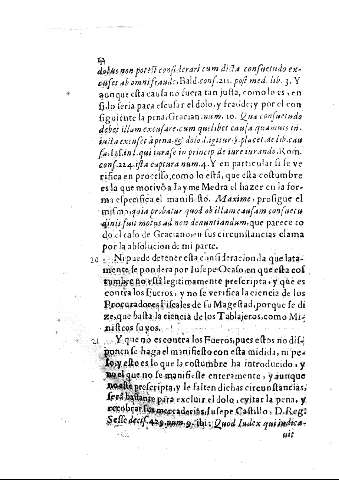 dolus non potest considerari cum dicta consuetudo ex-
cuset ab omni fraude, Bald. cons. 211. post med. lib. 3. Y
aunque esta causa no fuera tan justa, como lo es, en
si solo seria para escusar el dolo, y fraude; y por el con
siguiente la pena, Gracian. num. 10. Qua consuetudo
debet illam excusare, cum quælibet causa quamuis in-
iusta excuset à pena,
fa. qui iurase in princip. de iure iurando. Rom.
cons. 224. ista captura num. 4. Y en particular si se ve
rifica en processo, como lo està, que esta costumbre
es la que motivò a Iayme Medra el hazer en la for-
ma especifica el manifiesto. Maxime, prosigue el
mismo, quia probatur quod ob illam causam consuetu
dinis fuit motus ad non denuntiandum, que parece to
do el caso de Graciano, y sus circunstancias clama
por la absolucion de mi parte.
20 Ni puede detener esta consideracion la que lata-
mente se pondera por Iusepe Ocaso, en que esta cos
tumbre no està legitimamente prescripta, y que es
contra los Fueros, y no se verifica la ciencia de los
Procuradores Fiscales de su Magestad, porque se di
ze, que basta la ciencia de los Tablajeros, como Mi-
nistros suyos.
21 Y que no es contra los Fueros, pues estos no dis-
ponen se haga el manifiesto con esta midida, ni pe-
so, y esto es lo que la costumbre ha introducido, y
no el que no se manifieste enteramente, y aunque
no estè prescripta, y le falten dichas circunstancias,
serà bastante para excluir el dolo, evitar la pena, y
recobrar sus mercaderias, Iusepe Castillo, D. Reg.
Sesse decis. 429. num. 9. ibi: Quod Iudex qui indica-
uit